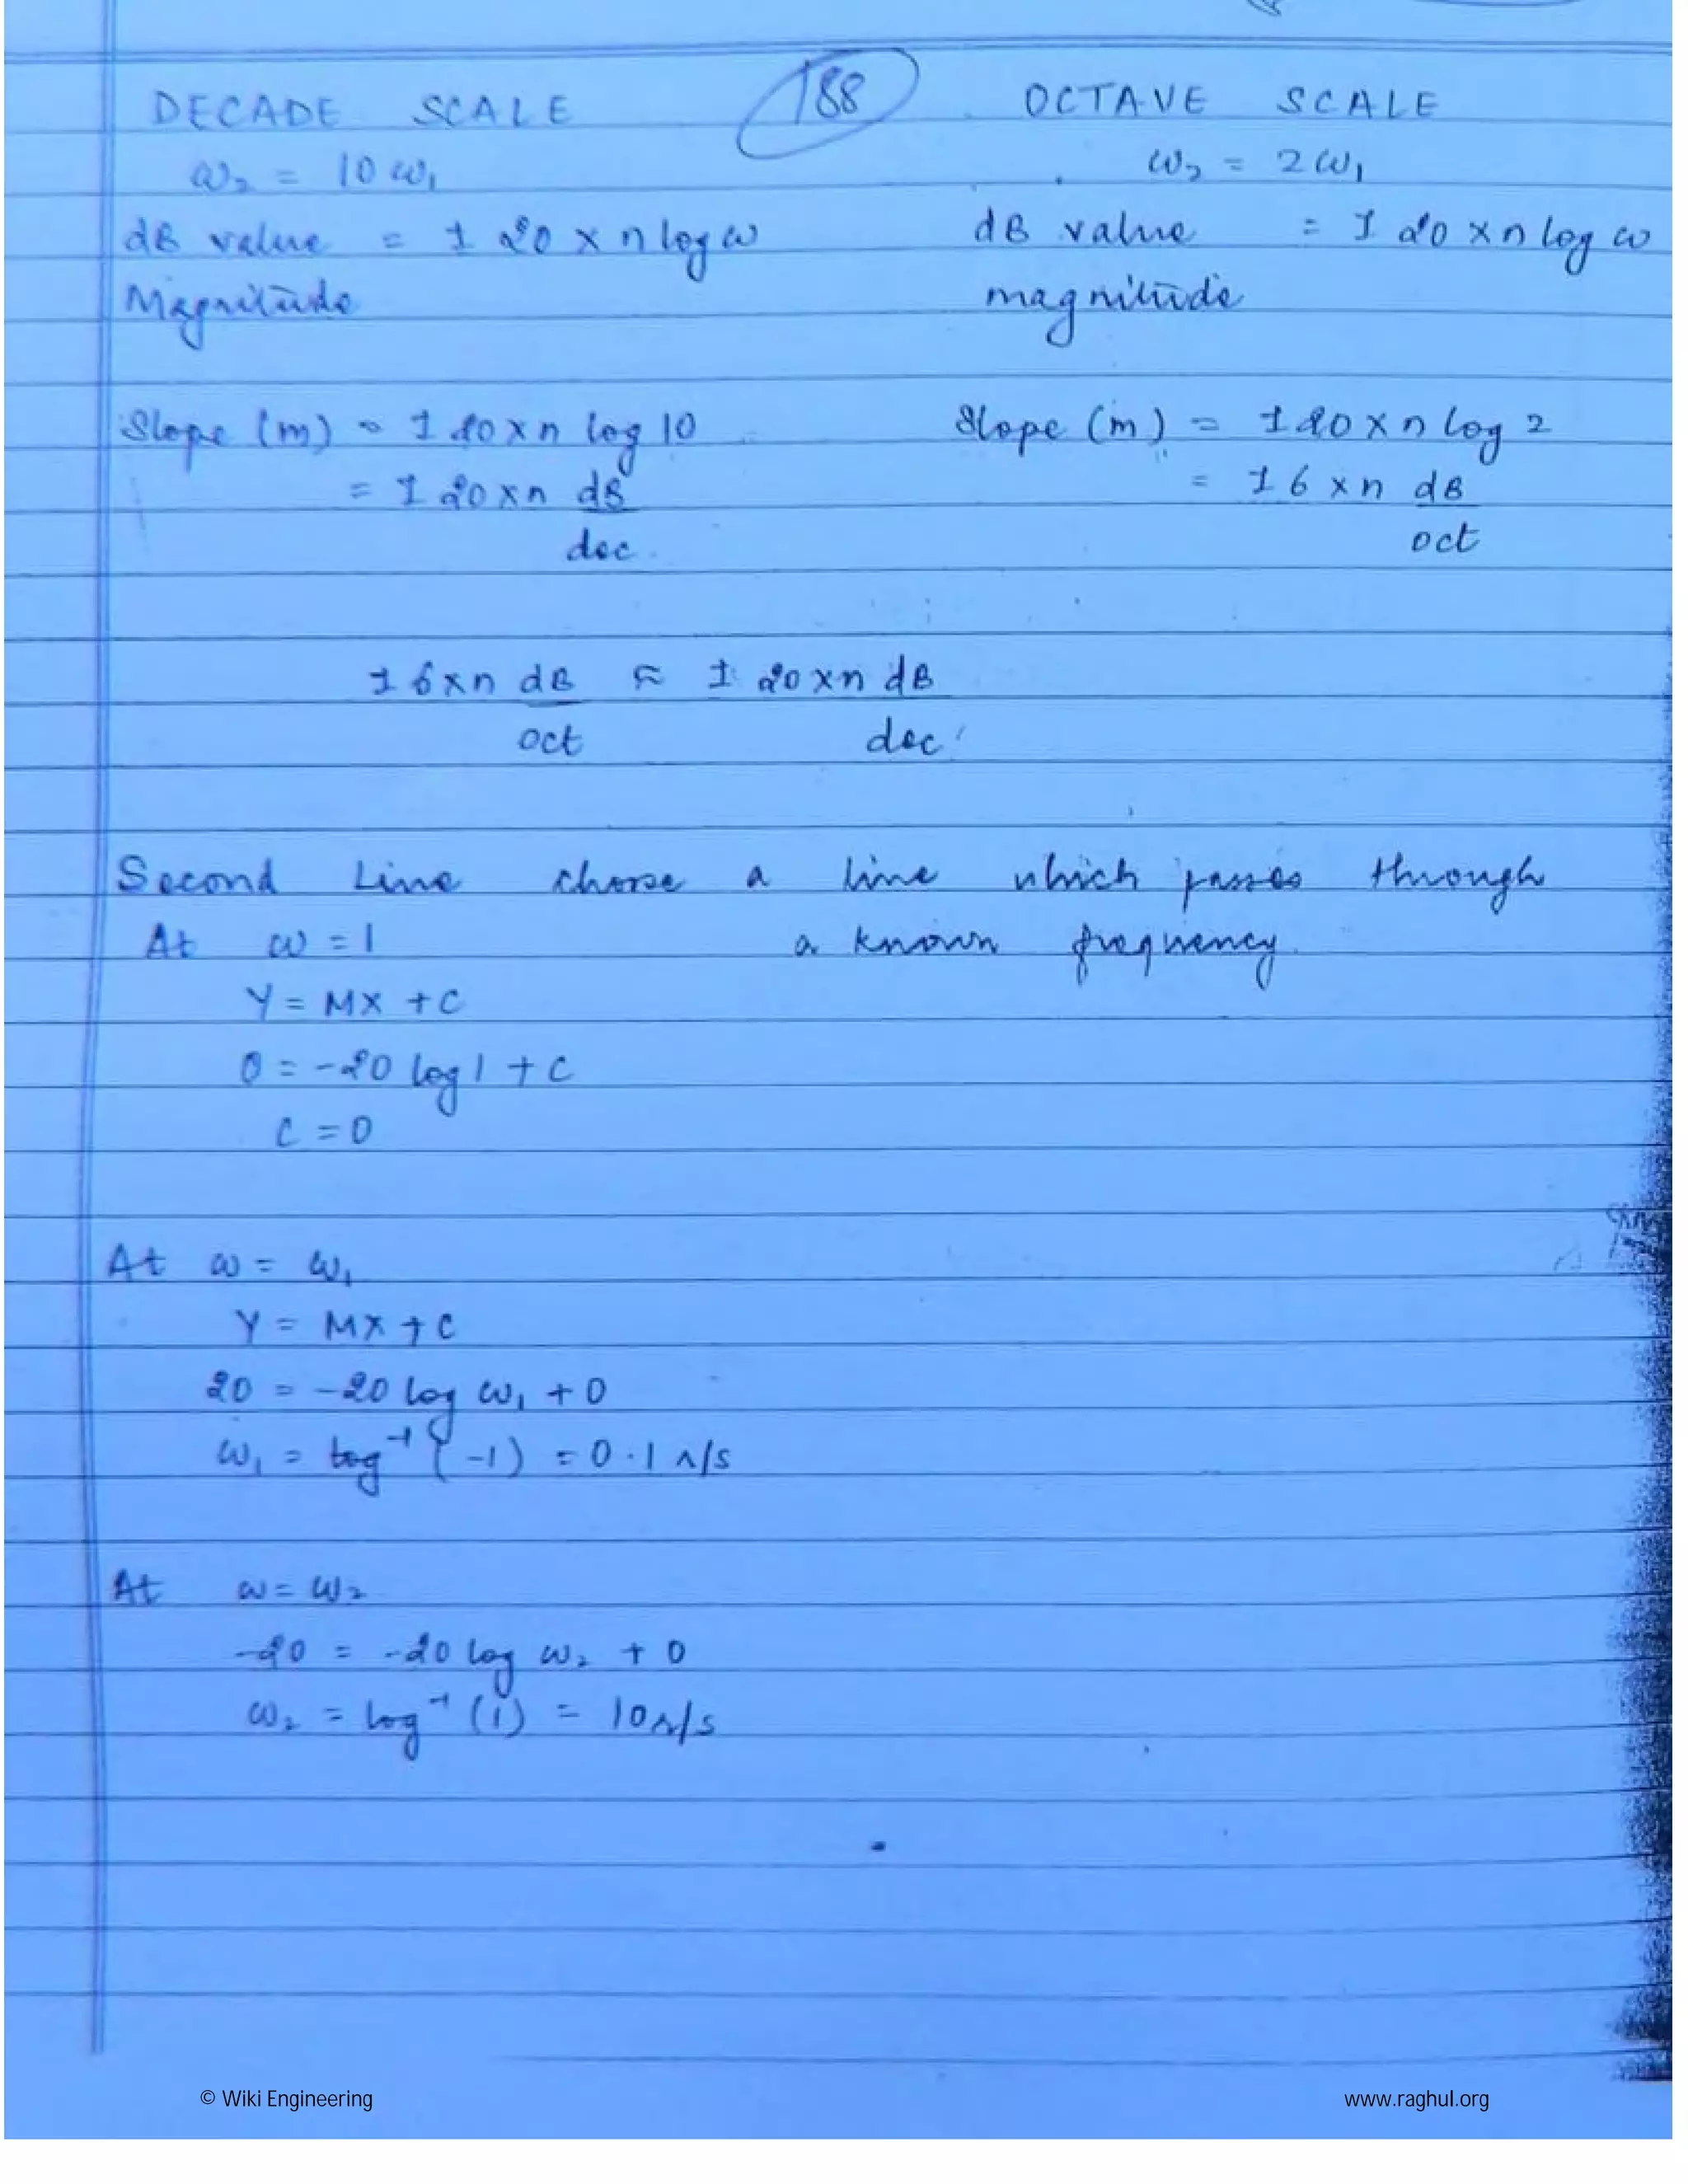 188
DECADE SCALE
ω₂ = 10 ω₁
dB value = ± 20 × n log ω
Magnitude
Slope (m) = ± 20 × n log 10
= ± 20 × n dB
dec
OCTAVE SCALE
ω₂ = 2 ω₁
dB value = ± 20 × n log ω
magnitude
Slope (m) = ± 20 × n log 2
= ± 6 × n dB
oct
± 6 × n dB ≈ ± 20 × n dB
oct dec
Second Line choose a line which passes through
a known frequency.
At ω = 1
Y = MX + C
0 = -20 log 1 + C
C = 0
At ω = ω₁
Y = MX + C
20 = -20 log ω₁ + 0
ω₁ = log⁻¹ (-1) = 0.1 r/s
At ω = ω₂
-20 = -20 log ω₂ + 0
ω₂ = log⁻¹ (1) = 10 r/s
© Wiki Engineering www.raghul.org